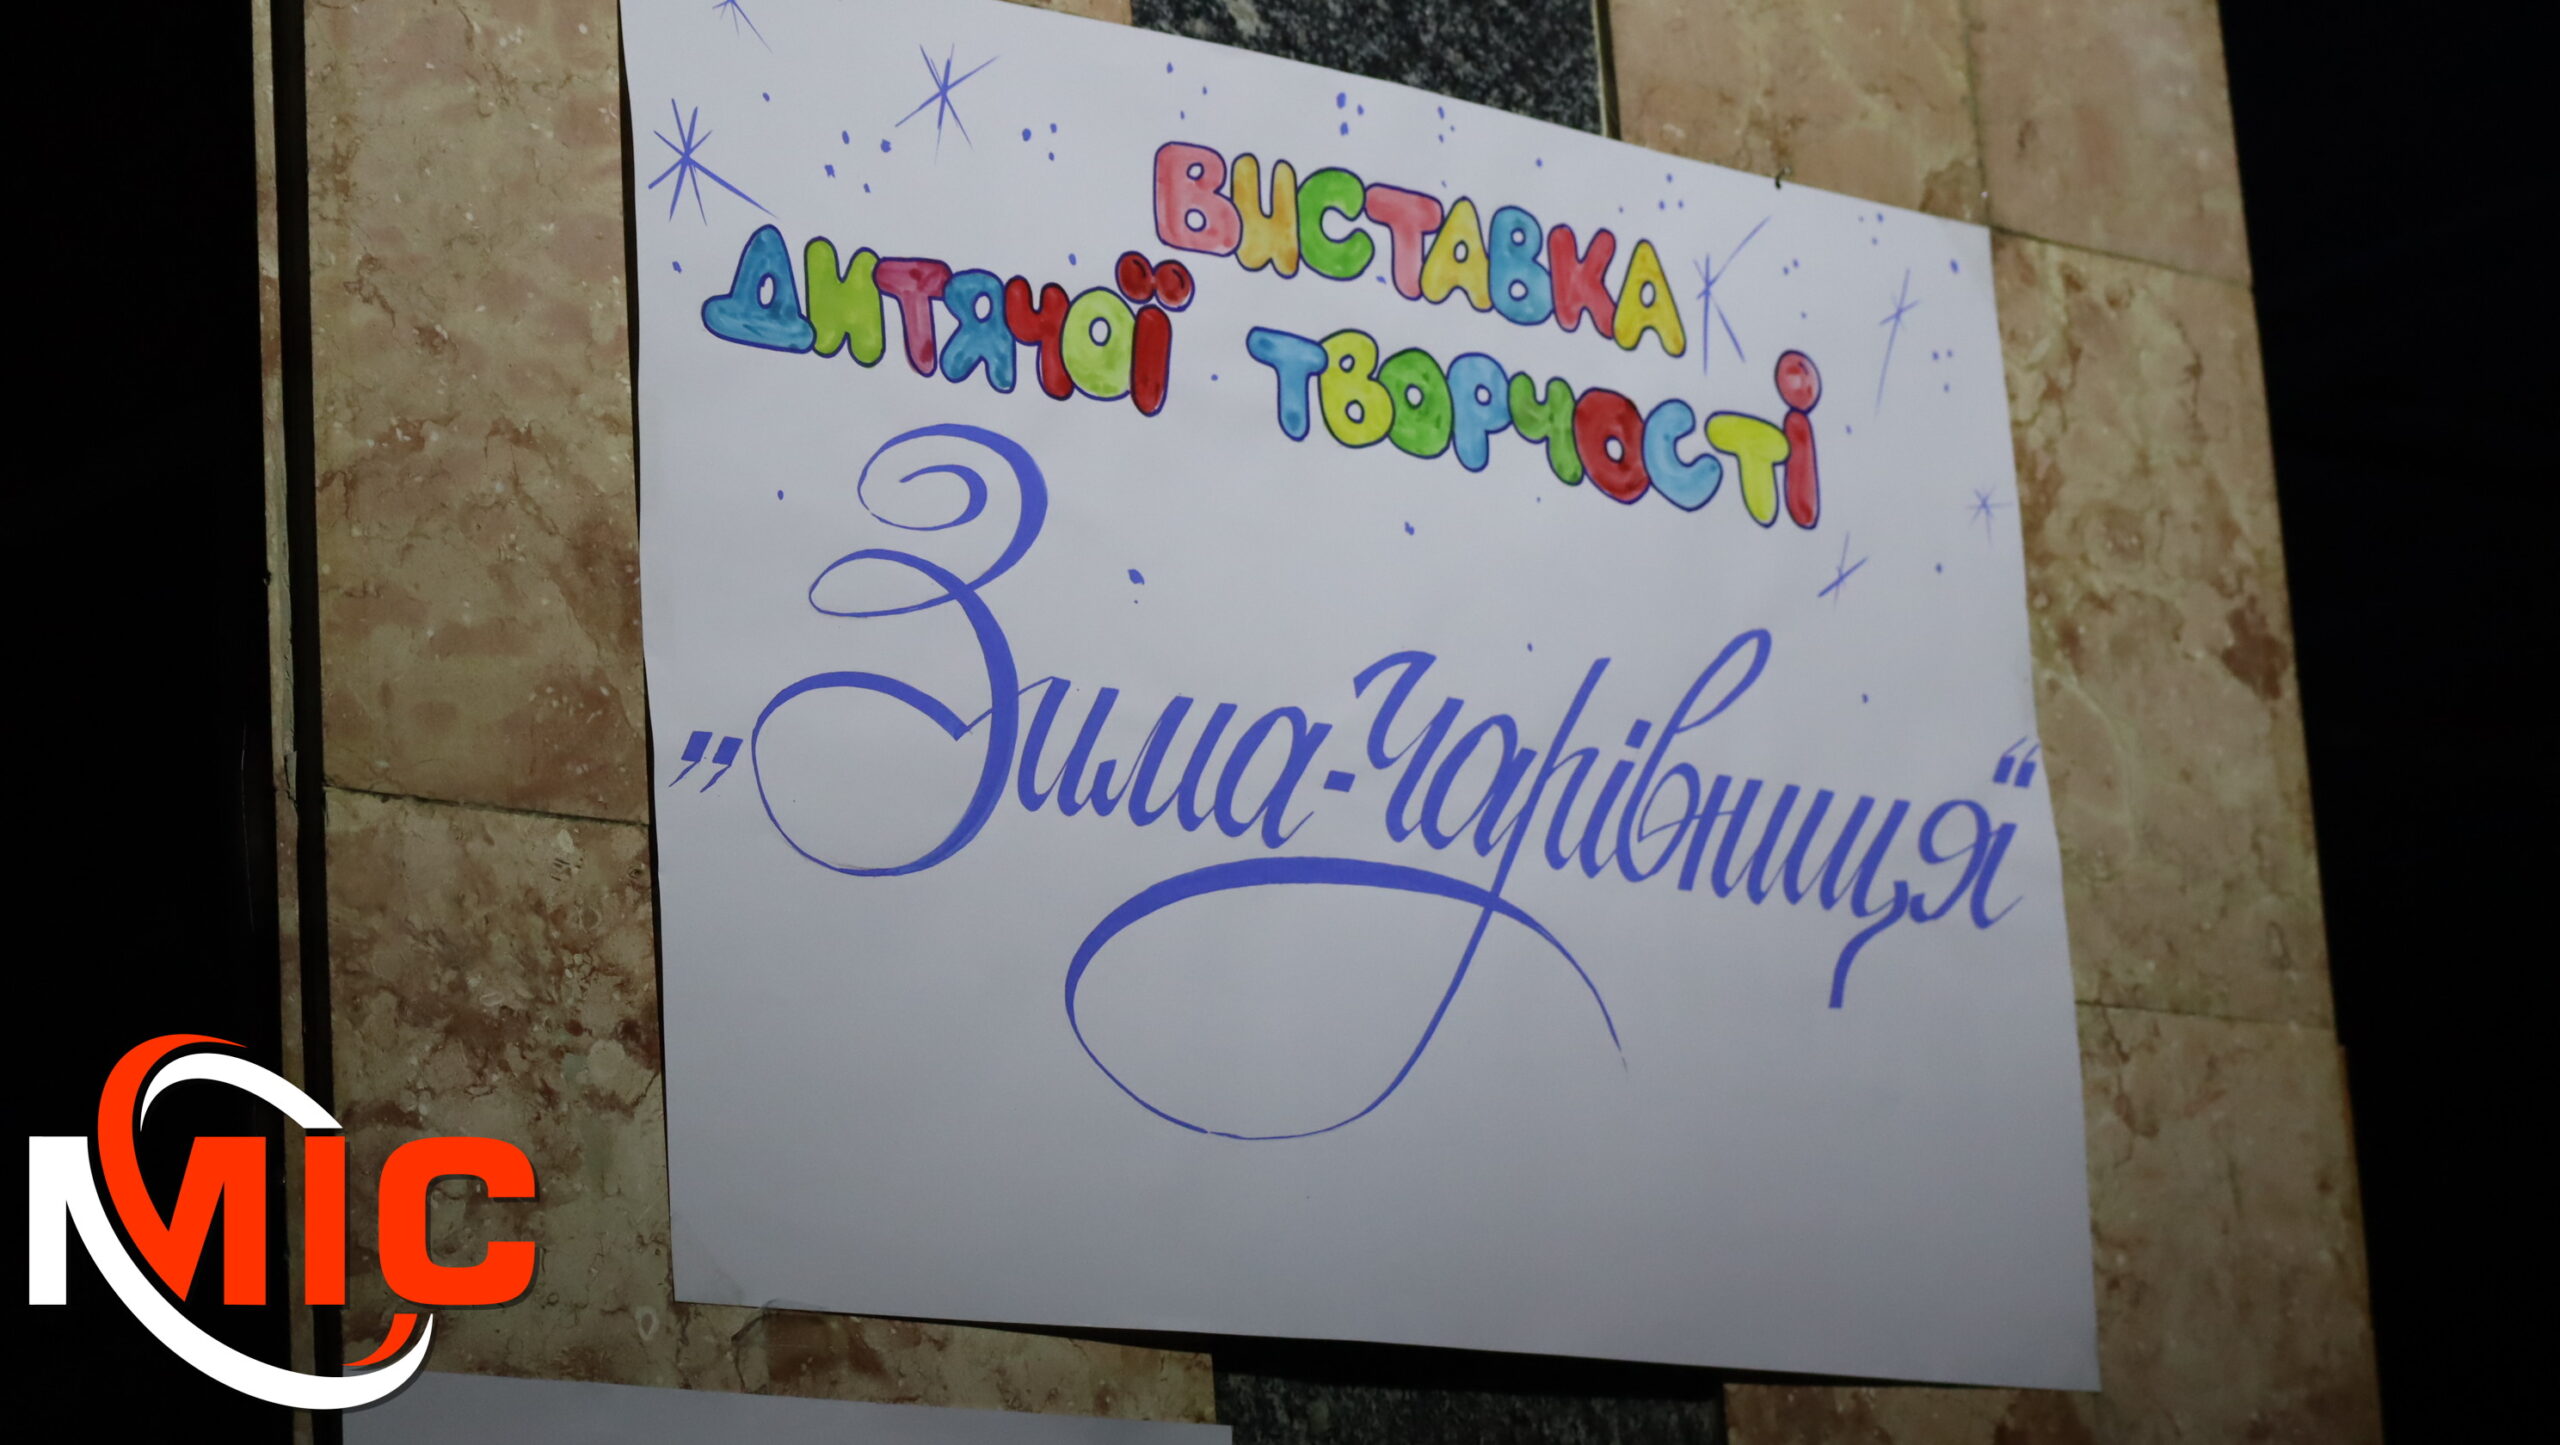 ВИСТАВКА
ДИТЯЧОЇ ТВОРЧОСТІ
„Зима-Чарівниця“
МІС